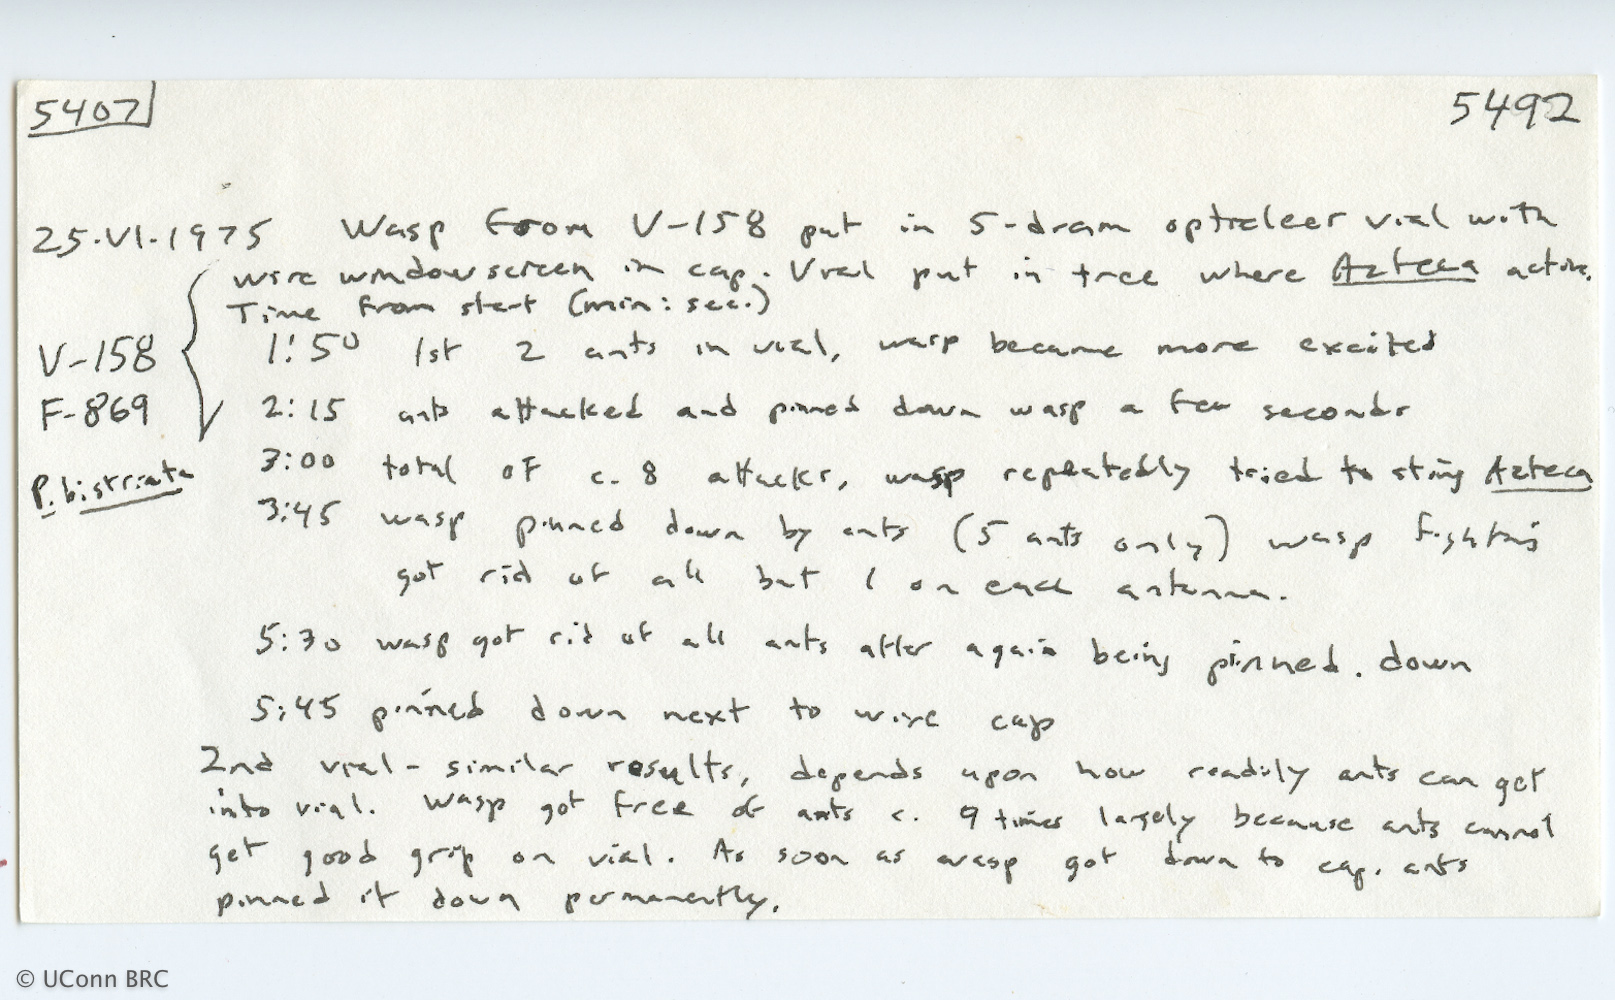 5407 5492
25.VI.1975 Wasp from V-158 put in 5-dram vial with
wire windowscreen in cap. Vial put in tree where Azteca active.
Time from start (min:sec.)
V-158 1:50 1st 2 ants in vial, wasp became more excited
F-869 2:15 ants attacked and pinned down wasp a few seconds
3:00 total of c. 8 attacks, wasp repeatedly tried to sting Azteca
P. bistriata
3:45 wasp pinned down by ants (5 ants only) wasp fighting
got rid of all but 1 on each antenna.
5:30 wasp got rid of all ants after again being pinned. down
5:45 pinned down next to wire cap
2nd vial - similar results, depends upon how readily ants can get
into vial. Wasp got free of ants c. 9 times largely because ants cannot
get good grip on vial. As soon as wasp got down to cap. ants
pinned it down permanently.
© UConn BRC